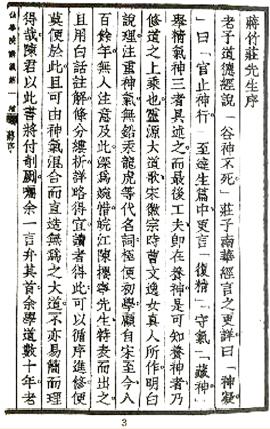 蔣竹莊先生序
老子道德經說「谷神不死」莊子南華經言之更詳曰「神凝
」曰「官止神行」至達生篇中更言「復精」「守氣」「藏神」
舉精氣神三者具述之而最後工夫卽在養神是可知養神者乃
修道之上乘也靈源大道歌宋徽宗時曹文逸女真人所作明白
說理注重神氣無鉛汞龍虎等代名詞極便初學顧自宋至今八
百餘年無人注意及此深爲惋惜皖江陳攖寧先生特表而出之
且用白話註解條分縷析詳略得宜讀者得此可以循序進修便
莫便於此且可由神氣混合而直造無爲之大道不亦易簡而理
得哉陳君以此書將付剞劂囑余一言弁其首余學道數十年老
3